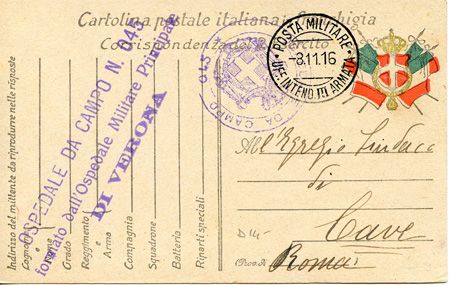 Cartolina postale italiana in franchigia
Corrispondenza del R. Esercito
* POSTA MILITARE *
-8.11.16
INTEND. III ARMATA
043
DA CAMPO
OSPEDALE DA CAMPO N. 045
formato dall'Ospedale Militare Principale
DI VERONA
Indirizzo del mittente da riprodurre nelle risposte
Cognome
e Nome
Grado
Reggimento
e Arma
Compagnia
Squadrone
Batteria
Riparti speciali
All'Egregio Sindaco
di
Cave
D 14-
(Prov. di
Roma